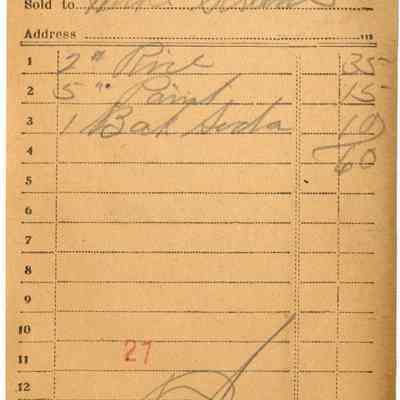 Sold to
Address
1 2 " Rice 35
2 5 " 15
3 1 Bak Soda 10
4 60
5
6
7
8
9
10
11 27
12